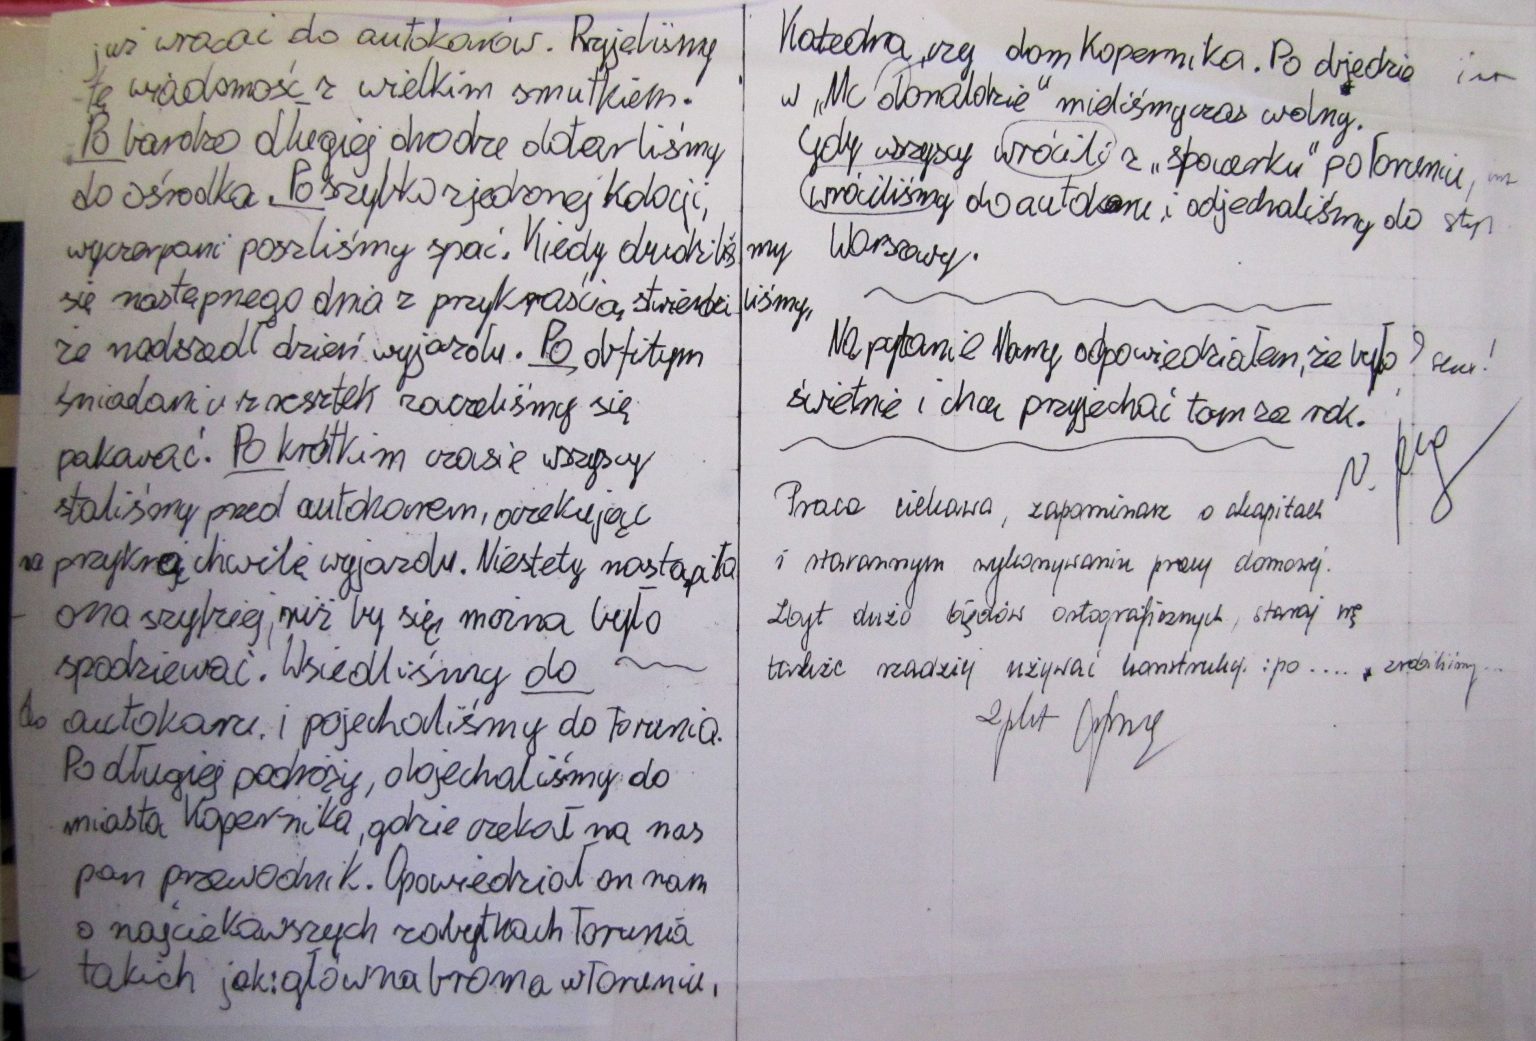 już wracać do autokarów. Przyjeliśmy
tę wiadomość z wielkim smutkiem.
Po bardzo długiej drodze dotarliśmy
do ośrodka. Po szybko zjedzonej kolacji,
wyczerpani poszliśmy spać. Kiedy dudziliśmy
się następnego dnia z przykrością stwierdziliśmy,
że nadszedł dzień wyjazdu. Po obfitym
śniadaniu z resztek zaczeliśmy się
pakawać. Po krótkim czasie wszyscy
staliśmy przed autokarem, oczekując
na przykrą chwilę wyjazdu. Niestety nastąpiła
ona szybciej, niż by się można było
spodziewać. Wsiedliśmy do
do autokaru. i pojechaliśmy do Torunia.
Po długiej podróży, dojechaliśmy do
miasta Kopernika, gdzie czekał na nas
pan przewodnik. Opowiedział on nam
o najciekawszych zabytkach Torunia
takich jak: główna brama w Toruniu,
Katedra, czy dom Kopernika. Po objedzie
w „Mc donaldzie" mieliśmy czas wolny.
Gdy wszyscy wrócili z „spowerku" po Toruniu,
wróciliśmy do autokaru, i odjechaliśmy do styl.
Warszawy.
Na pytanie Mamy odpowiedziałem, że było ?
świetnie i chcę przyjechać tam za rok.
Praca ciekawa, zapominasz o akapitach
i starannym wykonywaniu pracy domowej.
Zbyt dużo błędów ortograficznych, staraj się
także rzadziej używać konstrukcji: po .... , zrobiliśmy...